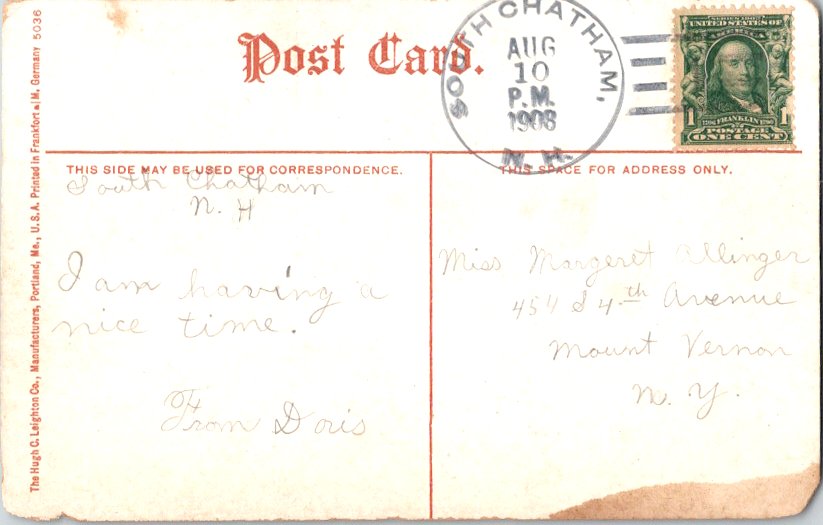 Post Card.
SOUTH CHATHAM,
AUG
10
P.M.
1908
N. H.
SERIES 1902
UNITED STATES OF
AMERICA
1 1
FRANKLIN
POSTAGE
ONE CENT
THIS SIDE MAY BE USED FOR CORRESPONDENCE.
THIS SPACE FOR ADDRESS ONLY.
South Chatham
N. H
I am having a
nice time.
From Doris
Miss Margeret Allinger
454 S 4th Avenue
Mount Vernon
N. Y.
The Hugh C. Leighton Co., Manufacturers, Portland, Me., U.S.A. Printed in Frankfort a/M. Germany 5036